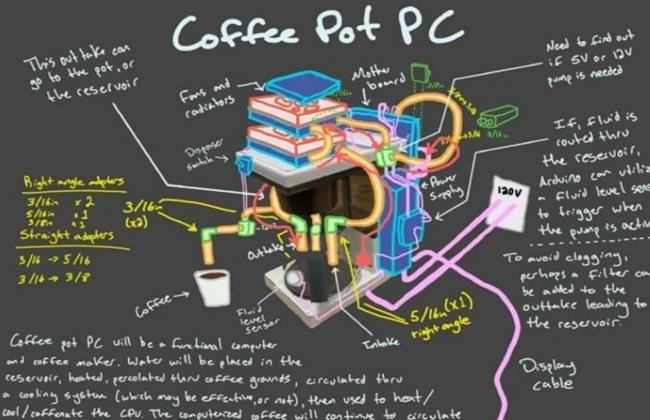 Coffee Pot PC
This outtake can
go to the pot, or
the reservoir
Fans and
radiators
Mother
board
Need to find out
if 5V or 12V
pump is needed
Dispenser
switch
Power
Supply
120V
If, fluid is
routed thru
the reservoir,
Arduino can utiliz
a fluid level sens
to trigger when
the pump is activ
Right angle adapters
3/16in x 2
5/16in x 1
3/8in x 1
Straight adapters
3/16 → 5/16
3/16 → 3/8
3/16in
(x2)
To avoid clogging,
perhaps a filter ca
be added to the
outtake leading to
the reservoir.
Outtake
Coffee
Fluid
level
sensor
Intake
5/16in(x1)
right angle
Display
cable
Coffee pot PC will be a functional computer
and coffee maker. Water will be placed in the
reservoir, heated, percolated thru coffee grounds, circulated thru
a cooling system (which may be effective, or not), then used to heat/
cool/caffeinate the CPU. The computerized coffee will continue to circulate